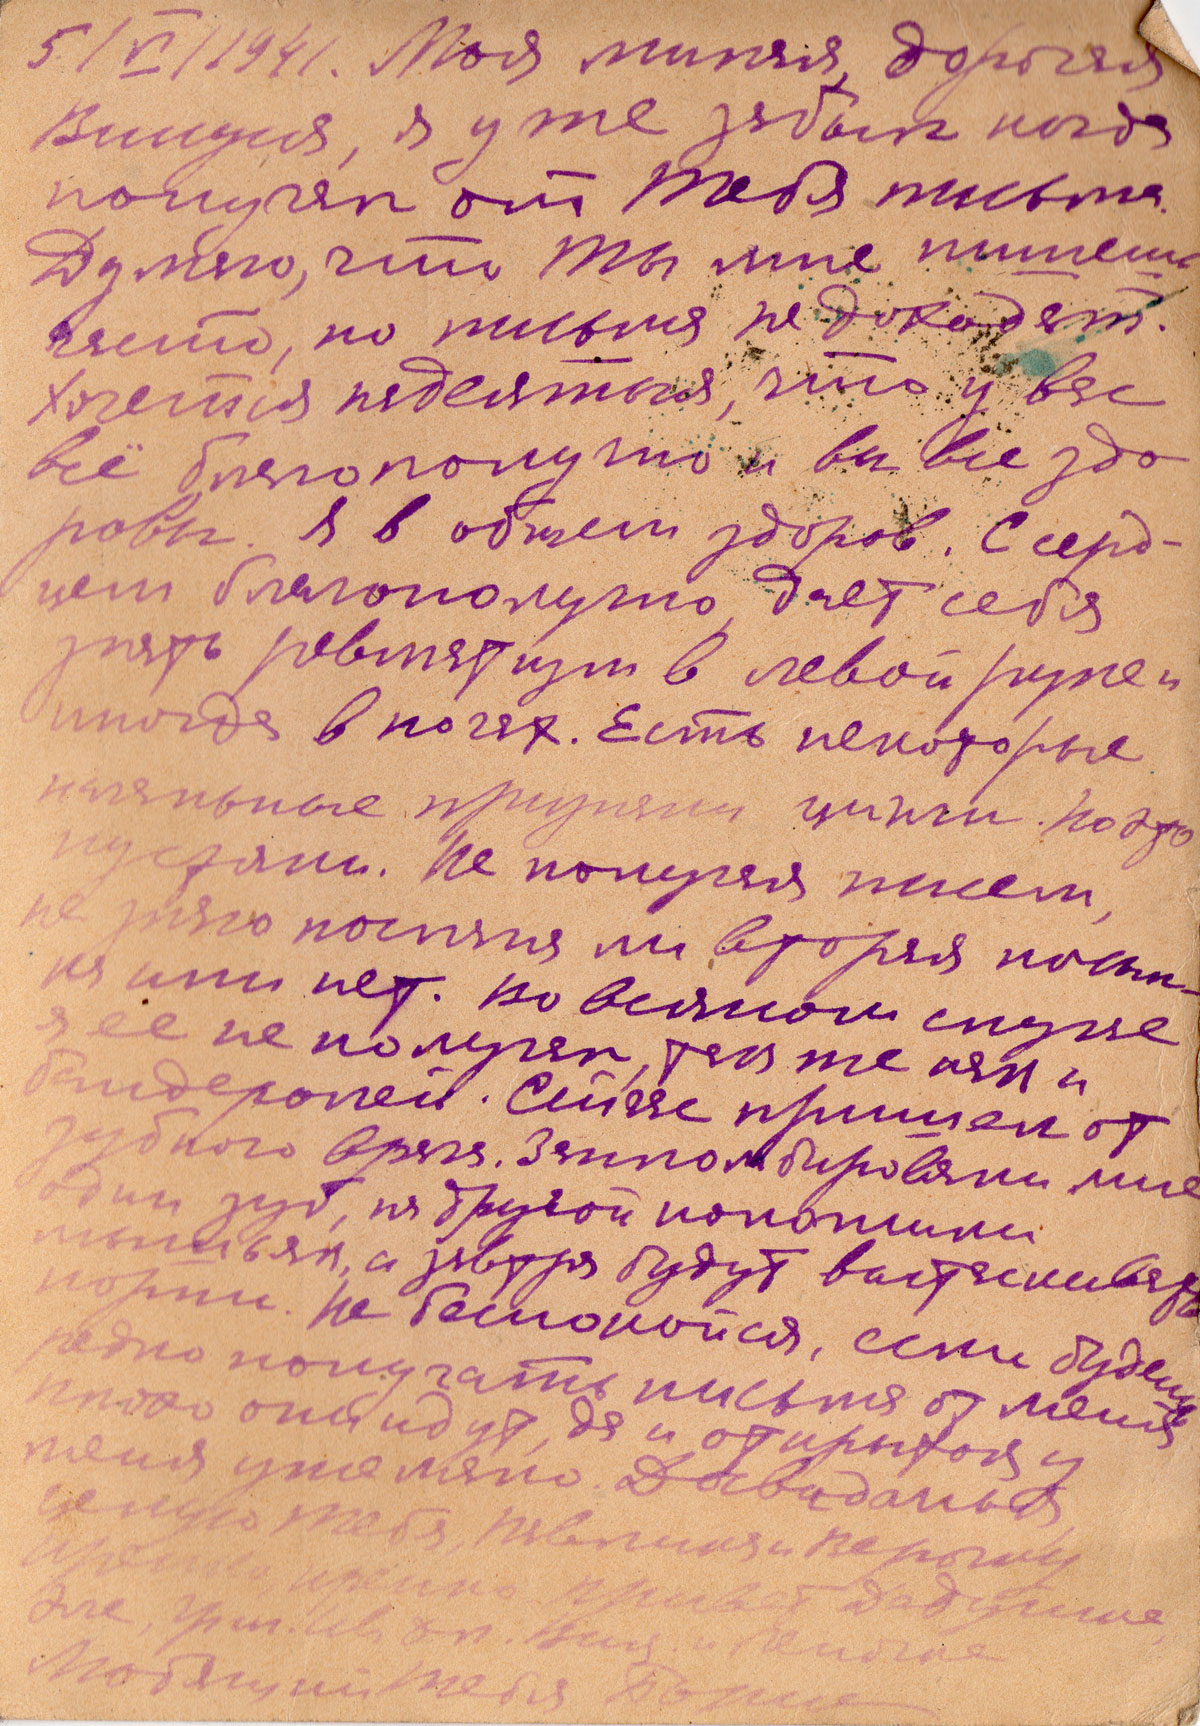 5/VI/1941. Моя милая, дорогая
Викуся, я уже забыл когда
получал от тебя письма.
Думаю, что ты мне пишешь
часто, но письма не доходят.
Хочется надеяться, что у вас
всё благополучно и вы все здо
ровы. Я в общем здоров. С серд-
цем благополучно, дает себя
знать ревматизм в левой руке и
иногда в ногах. Есть некоторые
начальные признаки цинги. Но это
пустяки. Не получая писем,
не знаю послана ли вторая посыл-
ка или нет. Во всяком случае
я её не получал, так же как и
бандеролей. Сейчас пришел от
зубного врача. Запломбировали мне
один зуб, на другой положили
мышьяк, а завтра будут вытаскивать
корни. Не беспокойся, если будешь
редко получать письма от меня
плохо они идут, да и открыток у
меня уже мало. Досвиданья,
целую тебя, Павлика и Верочку
крепко, нежно привет Дадунине,
Эле,
Любящий тебя Борис